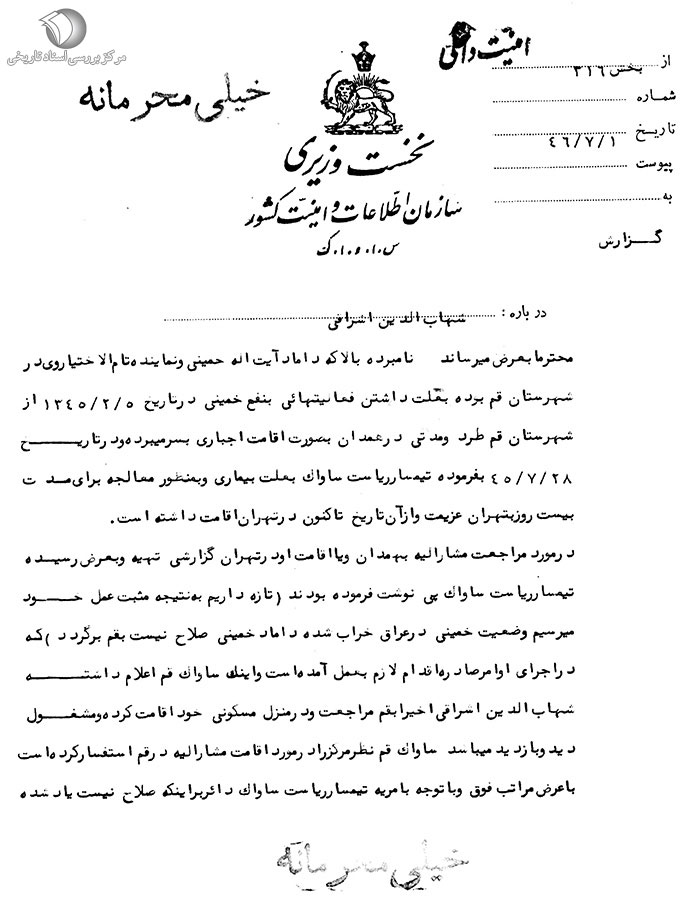 مرکز بررسی اسناد تاریخی
خیلی محرمانه
امنیت داخلی
از بخش ۳۱۶
شماره
تاریخ ۴۶/۷/۱
پیوست
به
گزارش
نخست وزیری
سازمان اطلاعات و امنیت کشور
س.ا.و.ا.ک
درباره: شهاب الدین اشراقی
محترما بعرض میرساند نامبرده بالا که داماد آیت اله خمینی و نماینده تام الاختیار وی در
شهرستان قم بوده بعلت داشتن فعالیتهائی بنفع خمینی در تاریخ ۱۳۴۵/۲/۵ از
شهرستان قم طرد و مدتی در همدان بصورت اقامت اجباری بسر میبرده و در تاریخ
۴۵/۷/۲۸ بفرموده تیمسار ریاست ساواک بعلت بیماری و بمنظور معالجه برای مدت
بیست روز بتهران عزیمت و از آن تاریخ تاکنون در تهران اقامت داشته است.
در مورد مراجعت مشارالیه بهمدان و یا اقامت او در تهران گزارشی تهیه و بعرض رسیده
تیمسار ریاست ساواک پی نوشت فرموده بودند (تازه داریم به نتیجه مثبت عمل خود
میرسیم وضعیت خمینی در عراق خراب شده داماد خمینی صلاح نیست بقم برگردد) که
در اجرای اوامر صادره اقدام لازم بعمل آمده است و اینک ساواک قم اعلام داشته
شهاب الدین اشراقی اخیرا بقم مراجعت و در منزل مسکونی خود اقامت کرده و مشغول
دید و بازدید میباشد ساواک قم نظر مرکز را در مورد اقامت مشارالیه در قم استفسار کرده است
با عرض مراتب فوق و با توجه بامریه تیمسار ریاست ساواک دائر بر اینکه صلاح نیست یاد شده
خیلی محرمانه